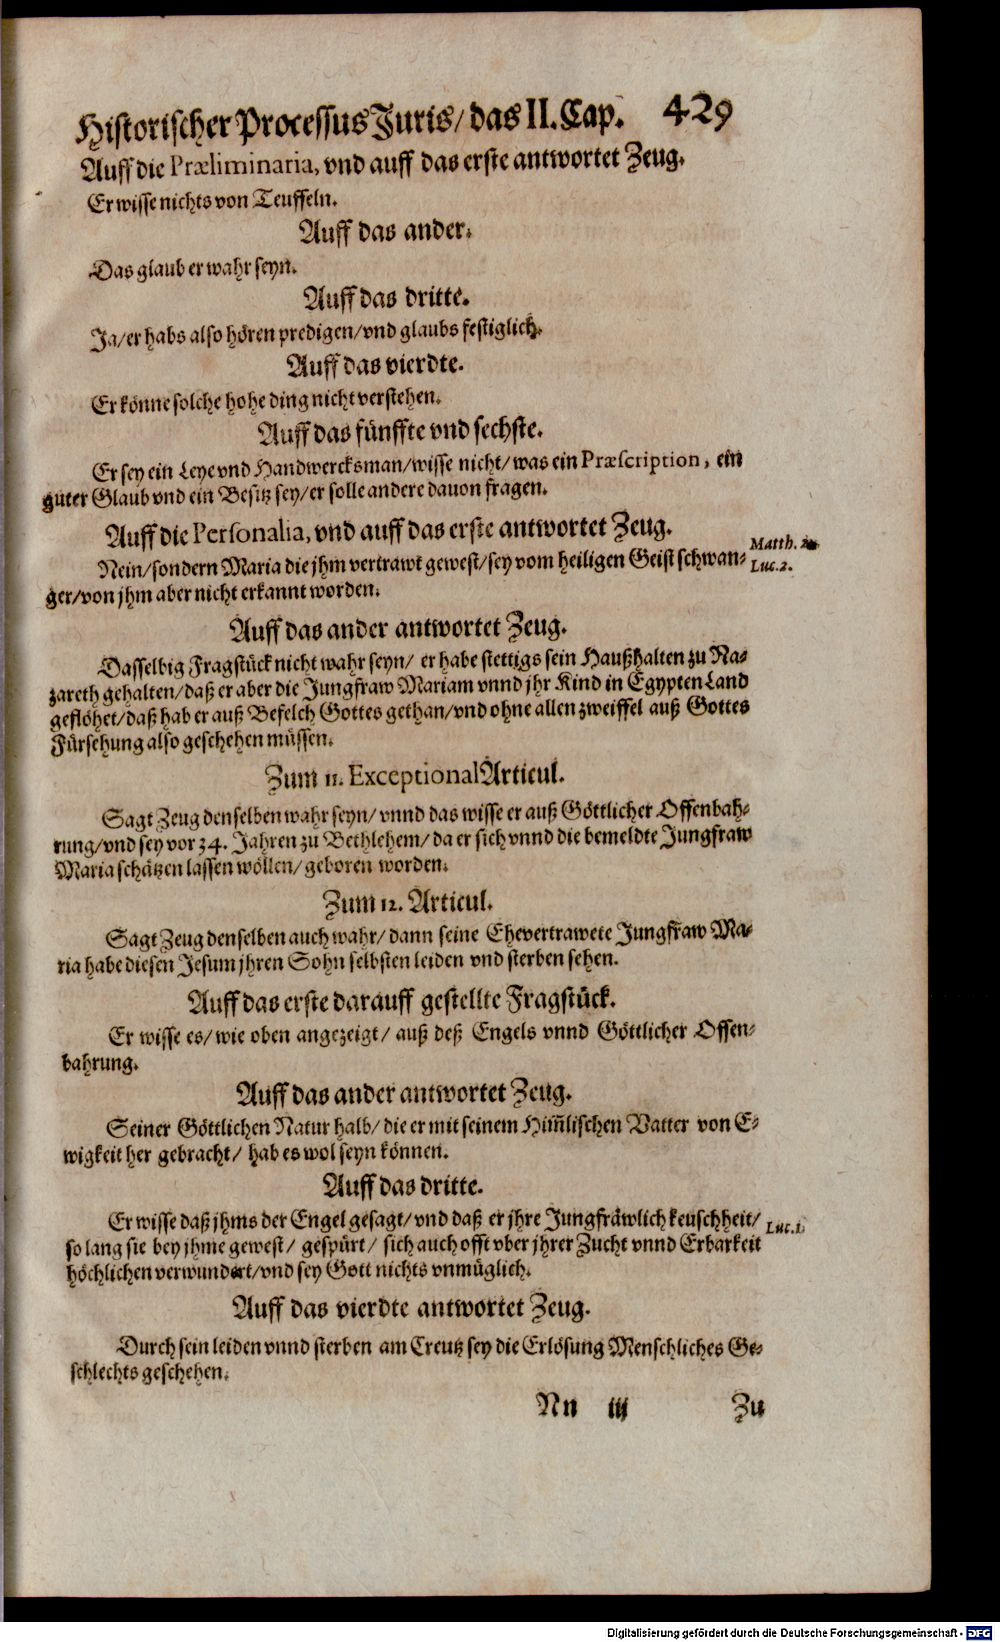 Historischer Processus Juris/ das II. Cap. 429
Auff die Præliminaria, vnd auff das erste antwortet Zeug.
Er wisse nichts von Teuffeln.
Auff das ander.
Das glaub er wahr seyn.
Auff das dritte.
Ja/ er habs also hören predigen/ vnd glaubs festiglich.
Auff das vierdte.
Er könne solche hohe ding nicht verstehen.
Auff das fünffte vnd sechste.
Er sey ein Leye vnd Handwercksman/ wisse nicht/ was ein Præscription, ein
guter Glaub vnd ein Besitz sey/ er solle andere dauon fragen.
Auff die Personalia, vnd auff das erste antwortet Zeug.
Nein/ sondern Maria die jhm vertrawt gewest/ sey vom heiligen Geist schwan-
Matth. 2.
Luc. 2.
ger/ von jhm aber nicht erkannt worden.
Auff das ander antwortet Zeug.
Dasselbig Fragstück nicht wahr seyn/ er habe stettigs sein Haußhalten zu Na-
zareth gehalten/ daß er aber die Jungfraw Mariam vnnd jhr Kind in Egypten Land
geflöhet/ daß hab er auß Befelch Gottes gethan/ vnd ohne allen zweiffel auß Gottes
Fürsehung also geschehen müssen.
Zum 11. Exceptional Articul.
Sagt Zeug denselben wahr seyn/ vnnd das wisse er auß Göttlicher Offenbah-
rung/ vnd sey vor 34. Jahren zu Bethlehem/ da er sich vnnd die bemeldte Jungfraw
Maria schätzen lassen wöllen/ geboren worden.
Zum 12. Articul.
Sagt Zeug denselben auch wahr/ dann seine Ehevertrawete Jungfraw Ma-
ria habe diesen Jesum jhren Sohn selbsten leiden vnd sterben sehen.
Auff das erste darauff gestellte Fragstück.
Er wisse es/ wie oben angezeigt/ auß deß Engels vnnd Göttlicher Offen-
bahrung.
Auff das ander antwortet Zeug.
Seiner Göttlichen Natur halb/ die er mit seinem Him̃lischen Vatter von E-
wigkeit her gebracht/ hab es wol seyn können.
Auff das dritte.
Er wisse daß jhms der Engel gesagt/ vnd daß er jhre Jungfräwlich keuschheit/
Luc. 1.
so lang sie bey jhme gewest/ gespürt/ sich auch offt vber jhrer Zucht vnnd Erbarkeit
höchlichen verwundert/ vnd sey Gott nichts vnmüglich.
Auff das vierdte antwortet Zeug.
Durch sein leiden vnnd sterben am Creutz sey die Erlösung Menschliches Ge-
schlechts geschehen.
Nn iij Zu
Digitalisierung gefördert durch die Deutsche Forschungsgemeinschaft - DFG